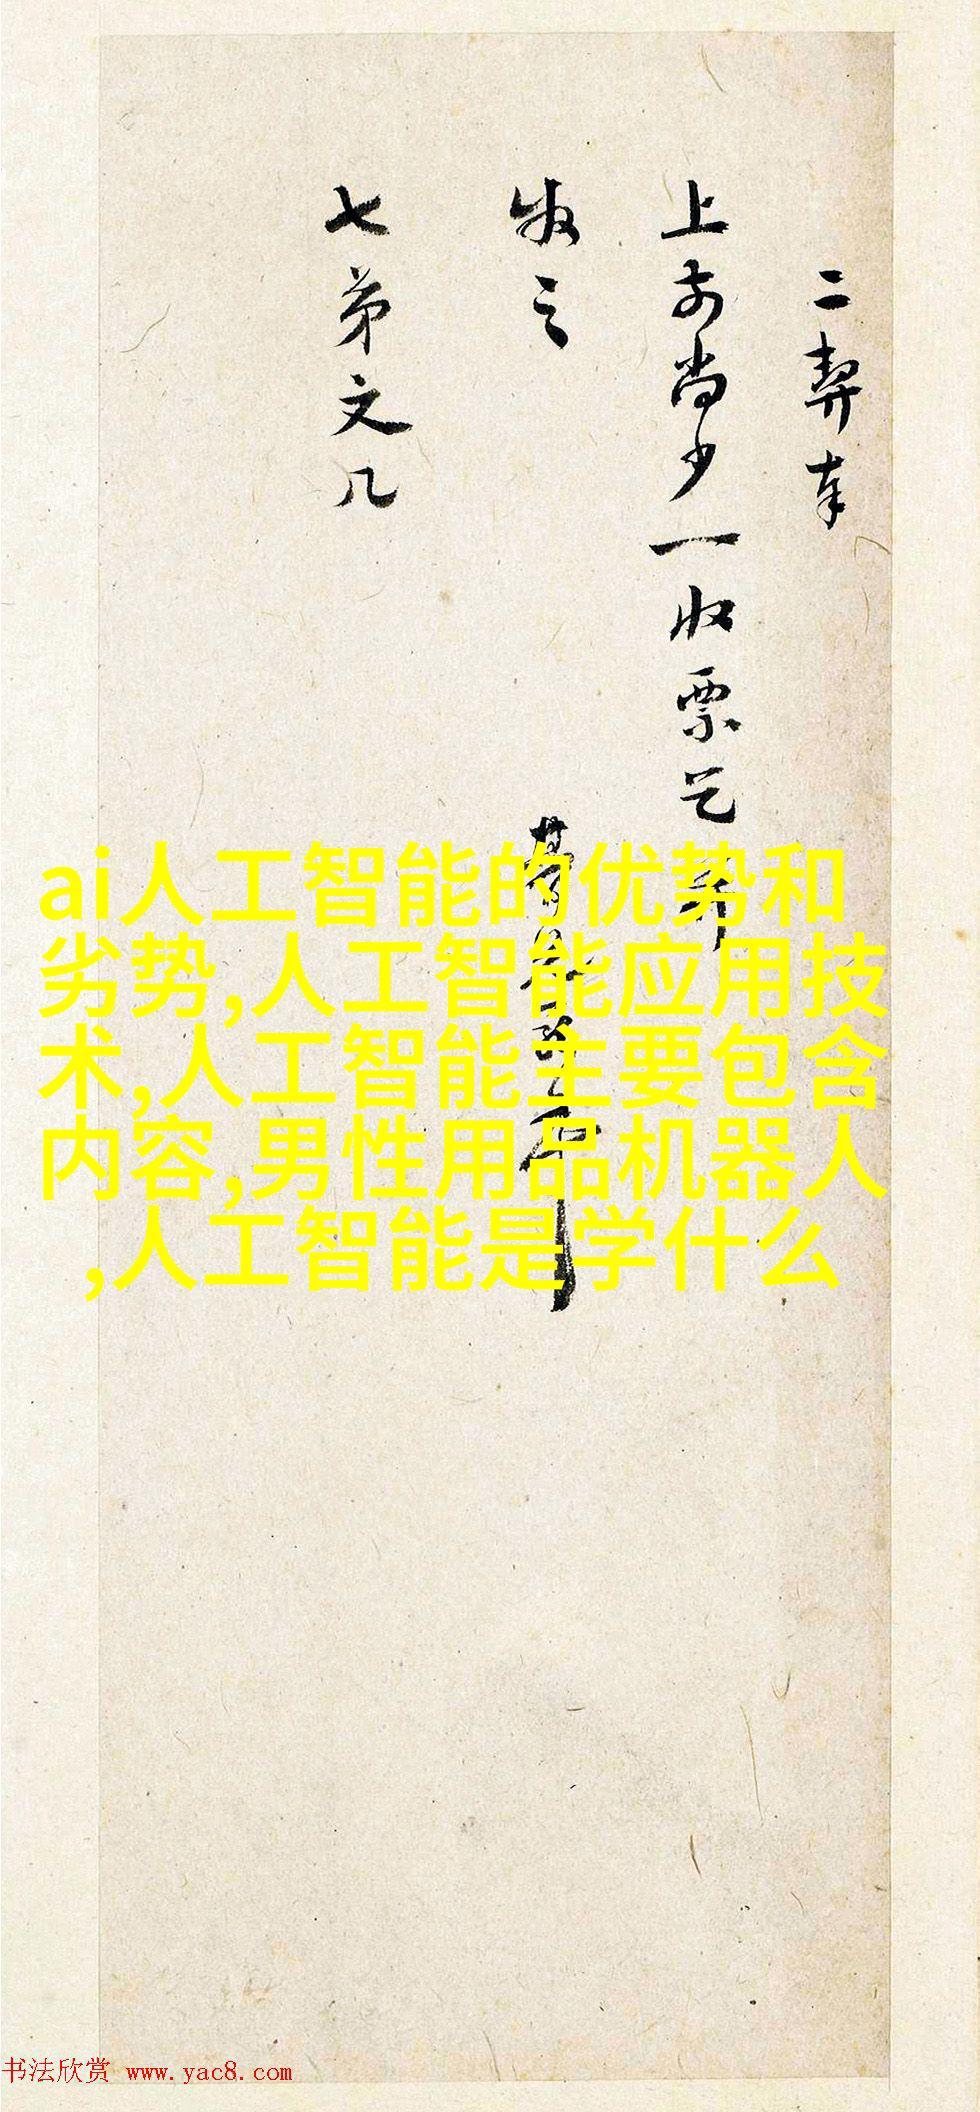 二契奉
上前尚少一收票乞
收之
七弟文几
ai人工智能的优势和
劣势,人工智能应用技
术,人工智能主要包含
内容,男性用品机器人
,人工智能是学什么
书法欣赏 www.yac8.com